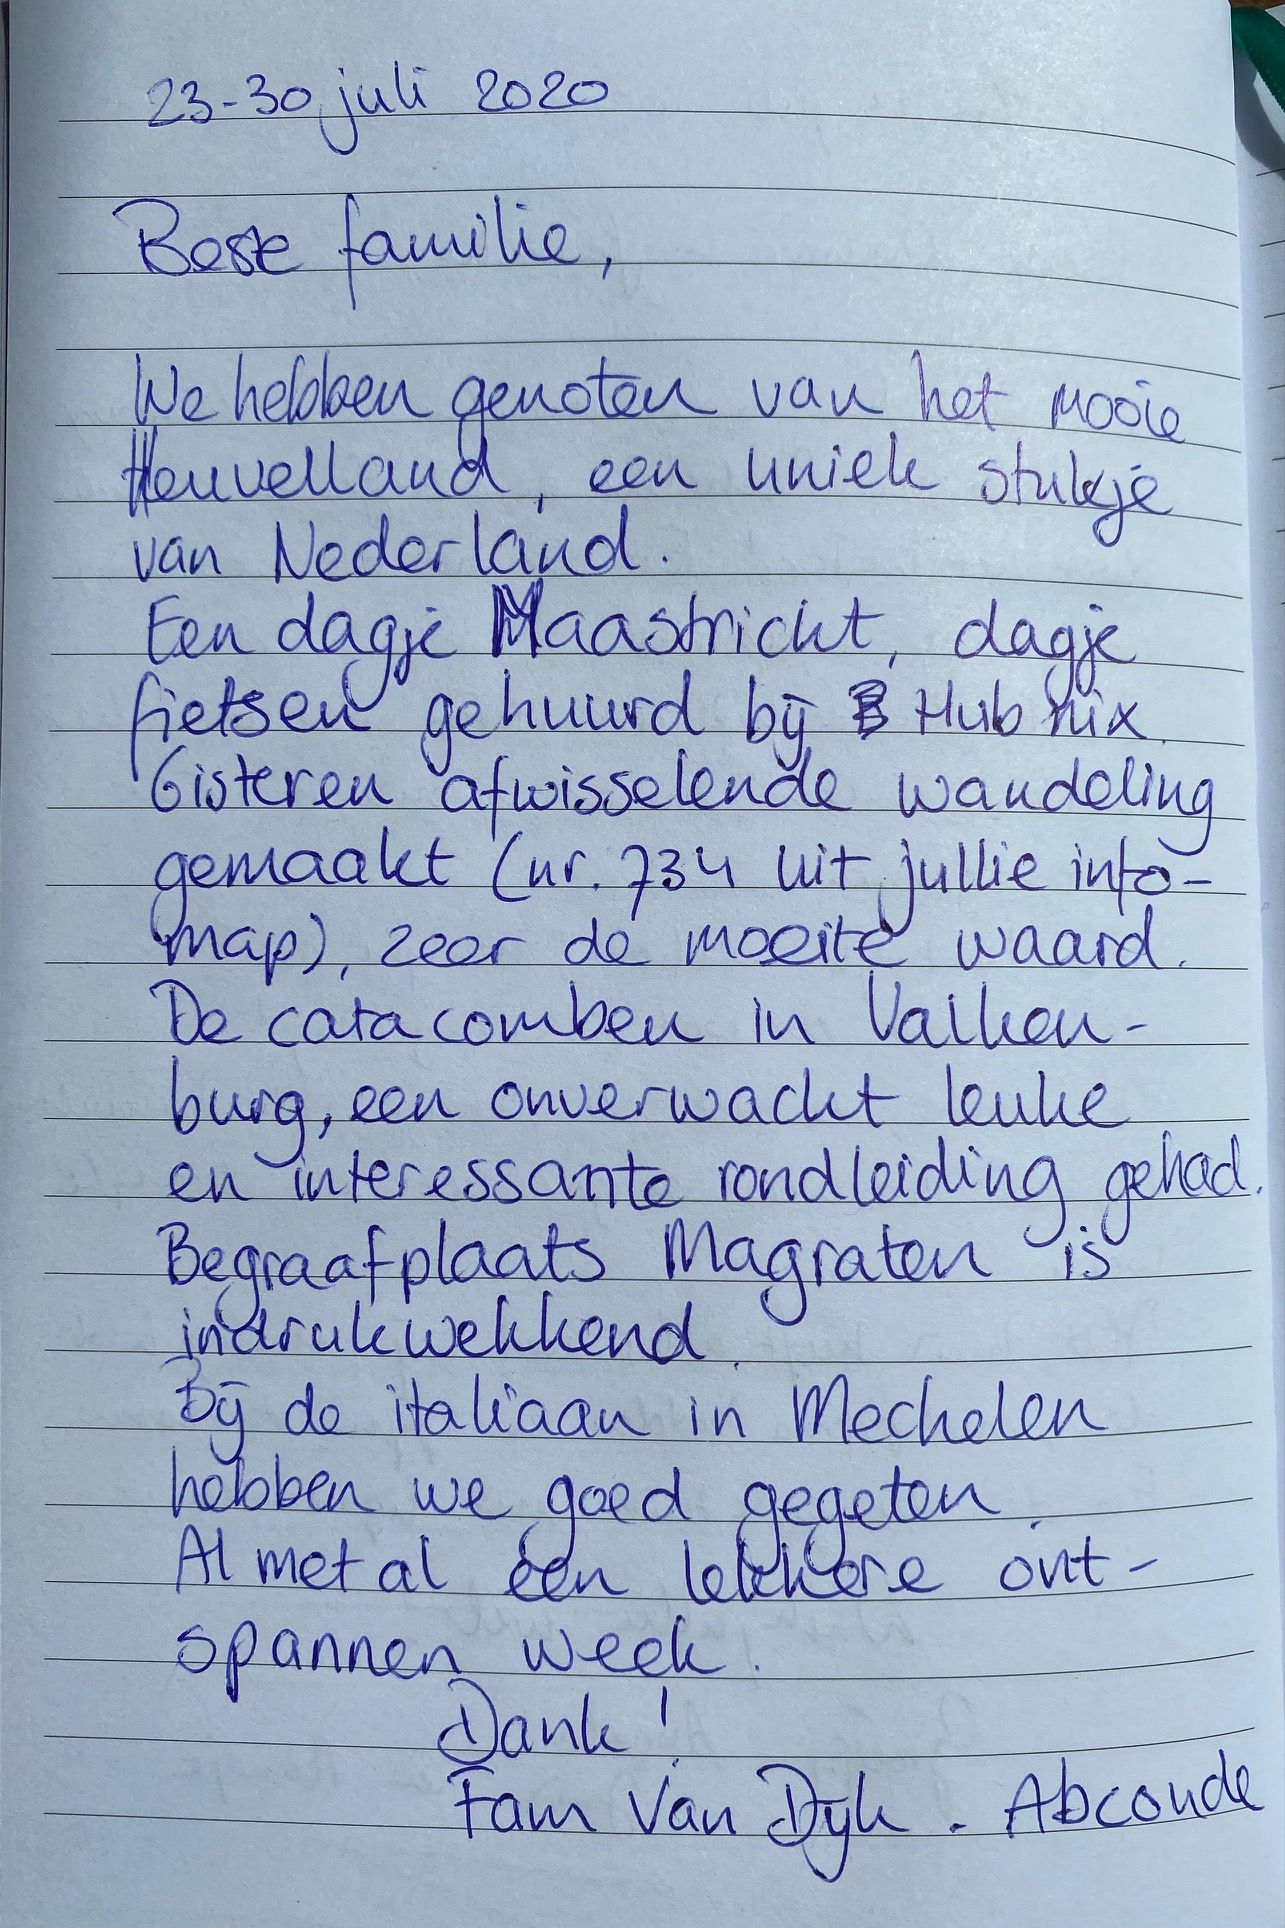 23-30 juli 2020
Beste familie,
We hebben genoten van het mooie
Heuvelland, een uniek stukje
van Nederland.
Een dagje Maastricht, dagje
fietsen gehuurd bij Hub nix.
Gisteren afwisselende wandeling
gemaakt (nr. 734 uit jullie info-
map), zeer de moeite waard.
De catacomben in Valken-
burg, een onverwacht leuke
en interessante rondleiding gehad.
Begraafplaats Magraten is
indrukwekkend.
Bij de italiaan in Mechelen
hebben we goed gegeten.
Al met al een lekkere ont-
spannen week.
Dank!
Fam Van Dijk. Abcoude